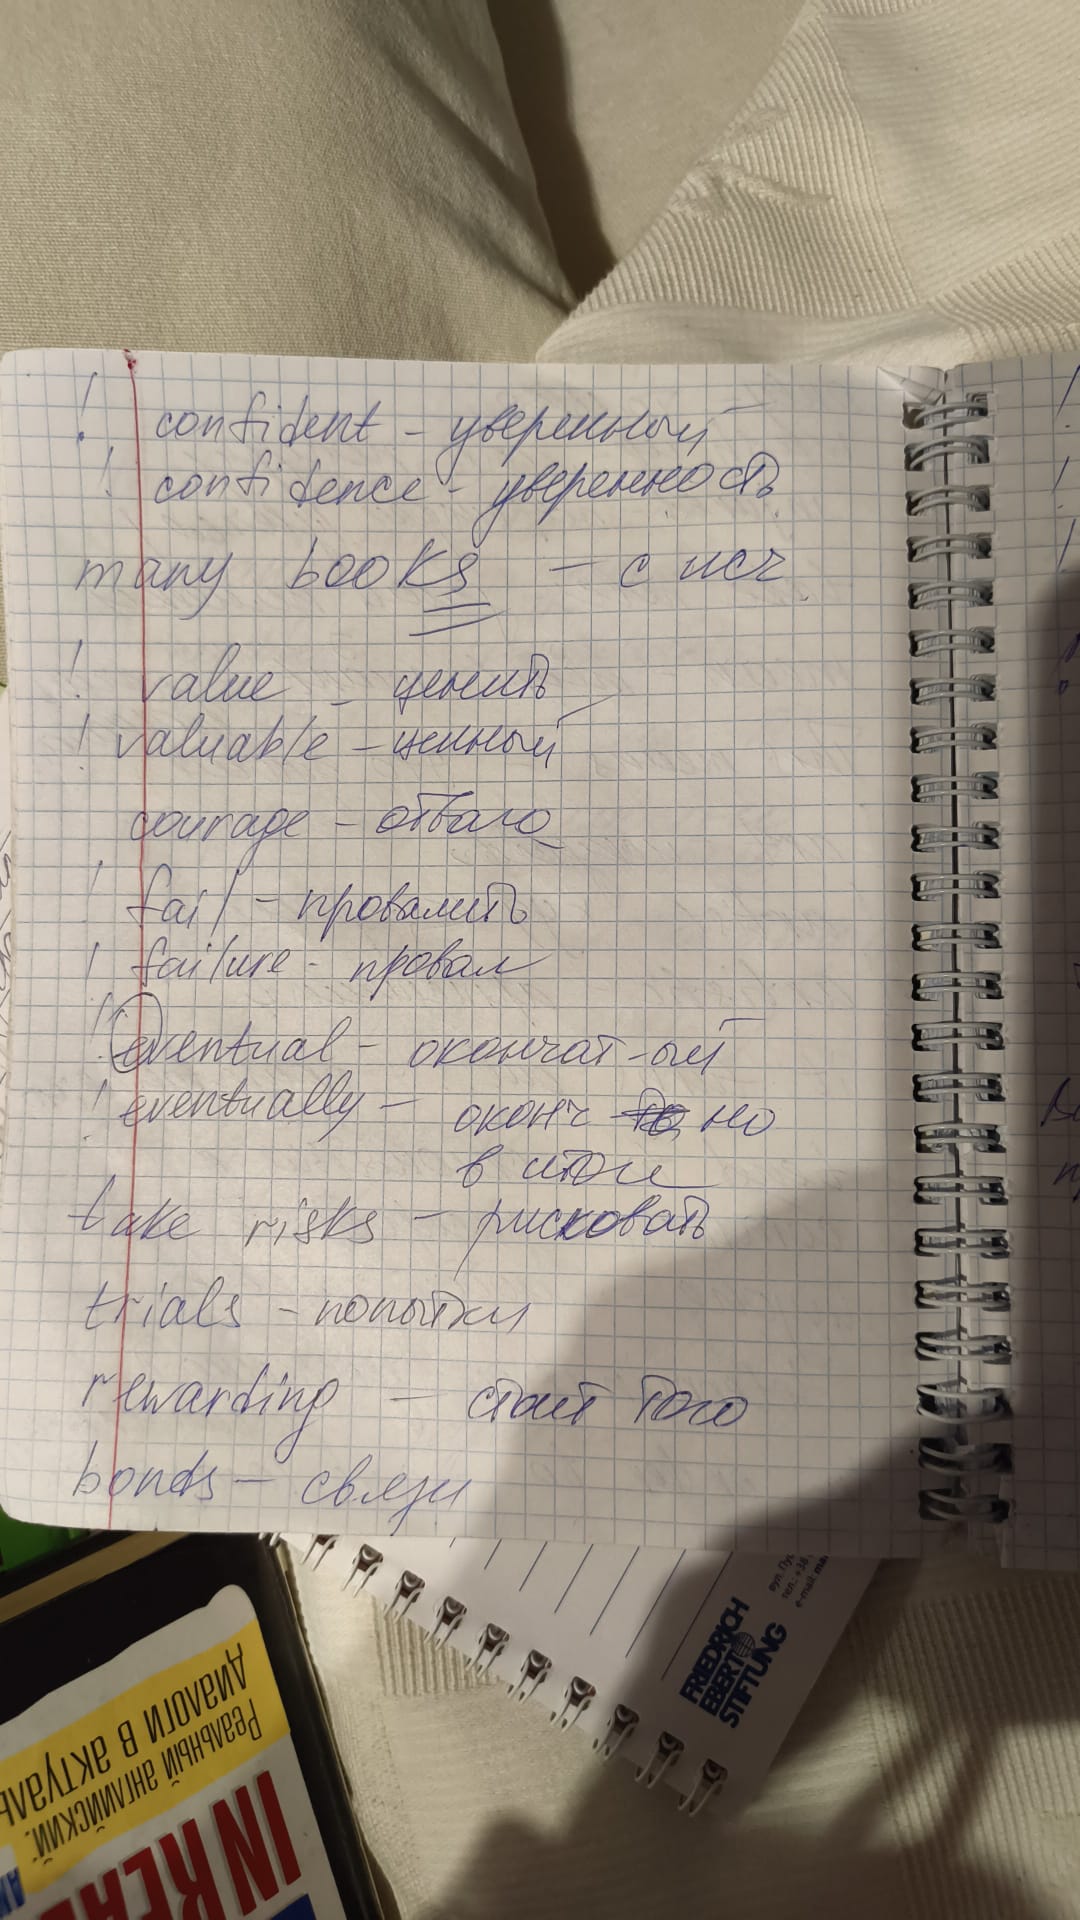 ! confident - уверенный
! confidence - уверенность
many books - с исч
! value - ценить
! valuable - ценный
courage - отвага
! fail - провалить
! failure - провал
! eventual - окончат-ый
! eventually - оконч но
в итоге
take risks - рисковать
trials - попытки
rewarding - стоит того
bonds - связи
FRIEDRICH
EBERT
STIFTUNG
вул. Пу
тел. +38
e-mail: ma
Реальный английский.
Диалоги в актуаль
IN REA